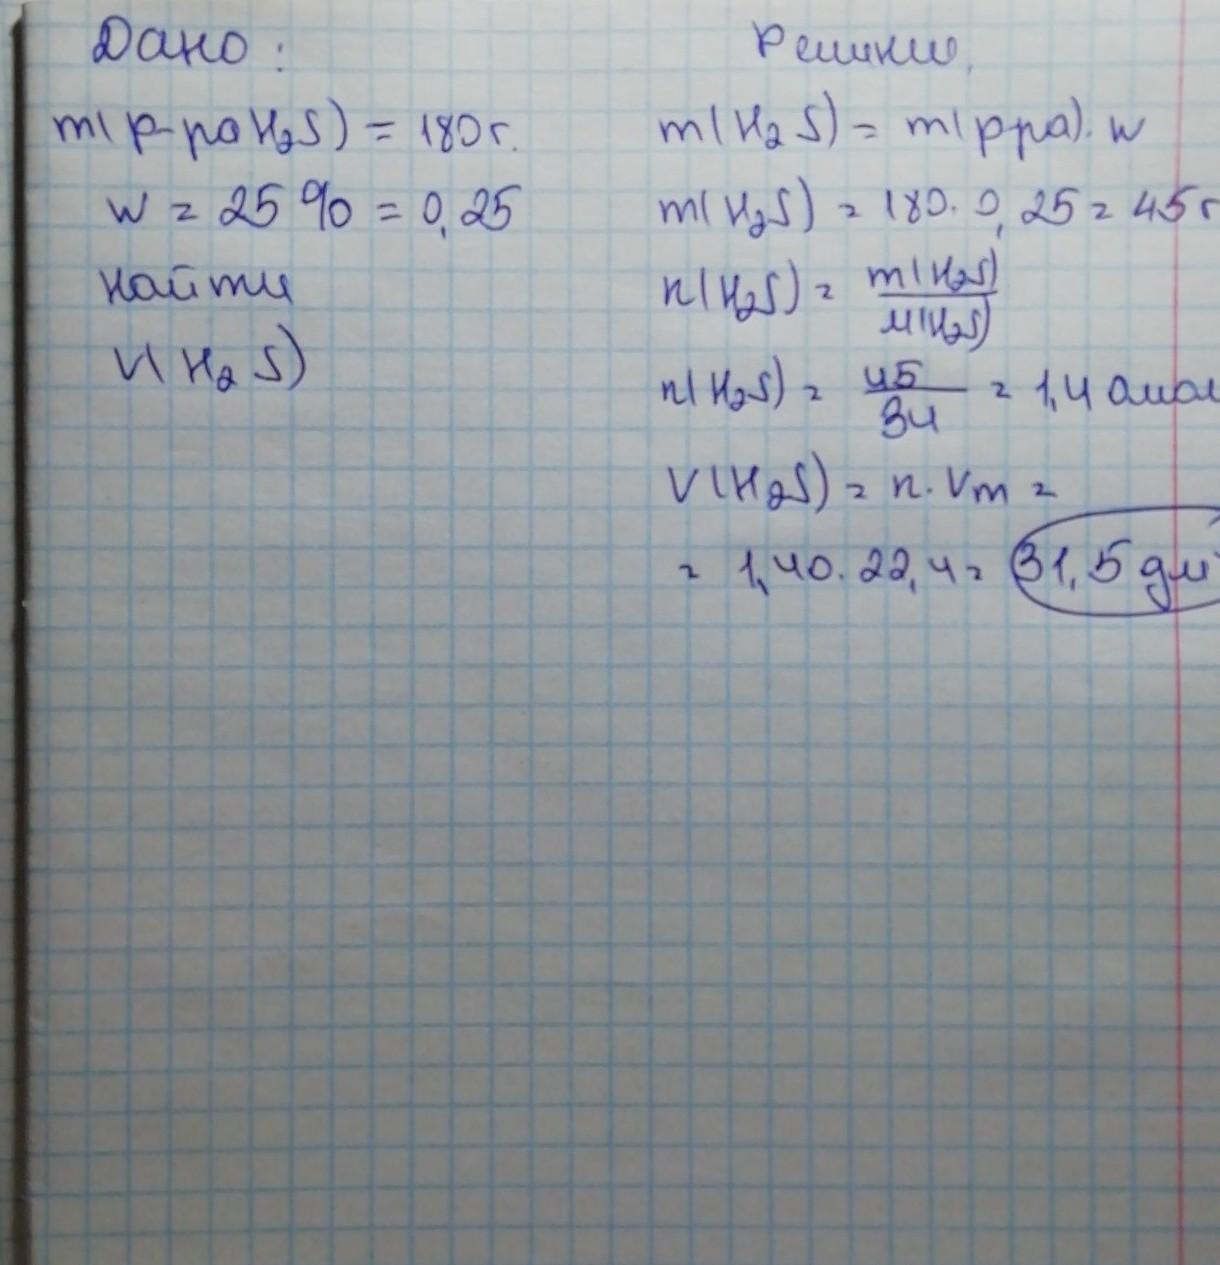 Дано:
m(р-ра H₂S) = 180 г.
w = 25 % = 0,25
Найти
V(H₂S)
Решение
m(H₂S) = m(р-ра) · w
m(H₂S) = 180 · 0,25 = 45 г
n(H₂S) = m(H₂S) / M(H₂S)
n(H₂S) = 45 / 34 = 1,40 мол
V(H₂S) = n · Vm =
= 1,40 · 22,4 = 31,5 дм